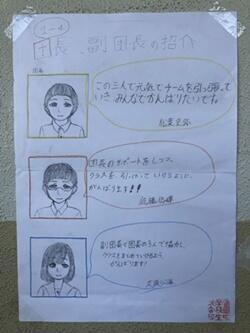 1-4
団長、副団長の紹介
団長
この三人で元気でチームを引っ張って
いき みんなでがんばりたいです。
団長のサポートをしつつ、
クラスを引っぱっていけるように
がんばります!!
副団長と団長の3人で協力し
クラスをまとめていけるよう
がんばります!